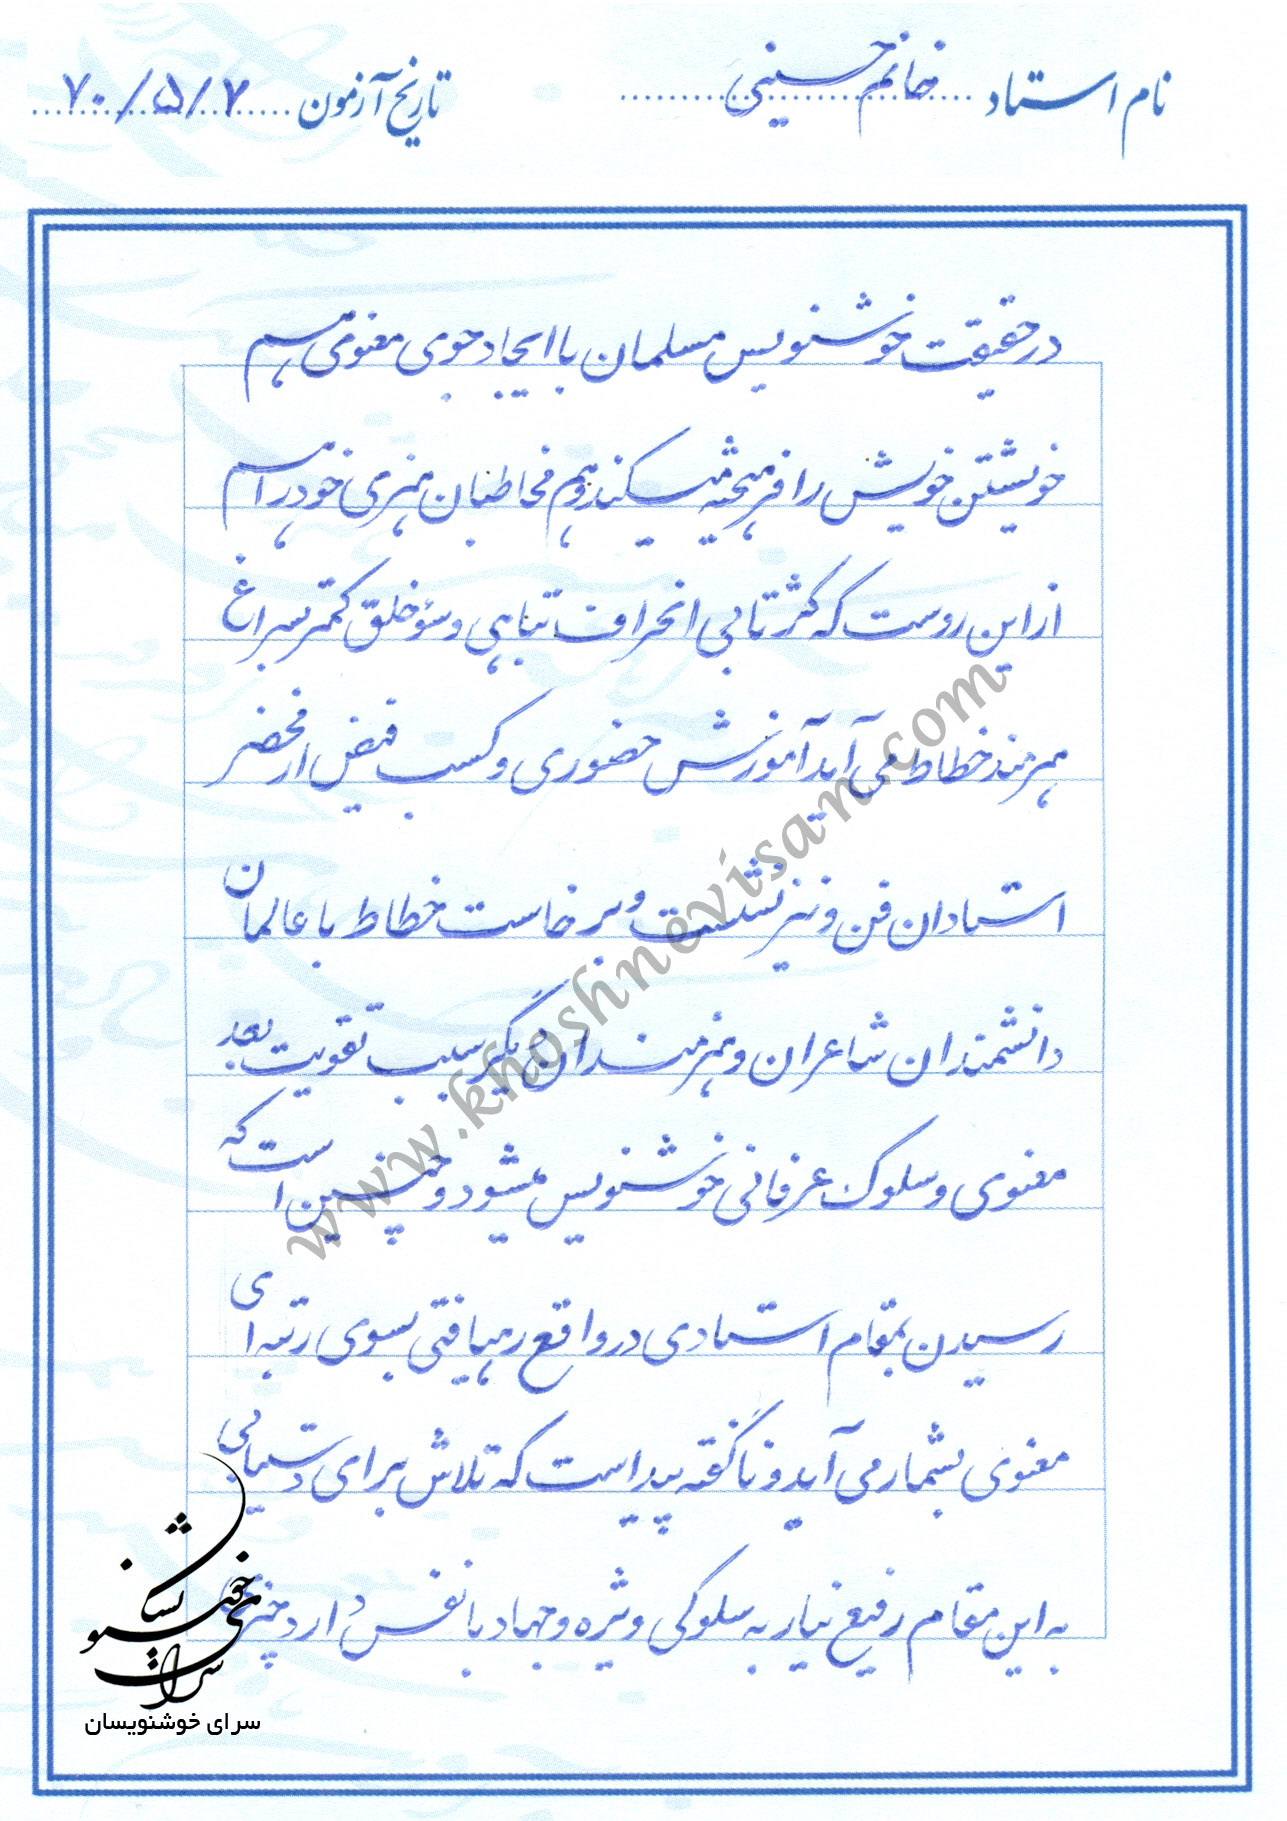 نام استاد خانم حسینی
تاریخ آزمون ۷۰/۵/۷
درحقیقت خوشنویس مسلمان با ایجاد جوی معنوی هم
خویشتن خویش را فرهیخته میکند و هم مخاطبان هنری خود را هم
از این روست که کژتابی انحراف تباهی و سؤ خلق کمتر بسراغ
هنرمند خطاط می آید آموزش حضوری و کسب فیض از محضر
استادان فن و نیز نشست و برخاست خطاط با عالمان
دانشمندان شاعران و هنرمندان دیگر سبب تقویت بعد
معنوی و سلوک عرفانی خوشنویس میشود و چنین است که
رسیدن بمقام استادی در واقع رهیافتی بسوی رتبه ای
معنوی بشمار می آید و ناگفته پیداست که تلاش برای دستیابی
به این مقام رفیع نیاز به سلوکی ویژه و جهاد با نفس دارد
سرای خوشنویسان
www.khoshnevisan.com